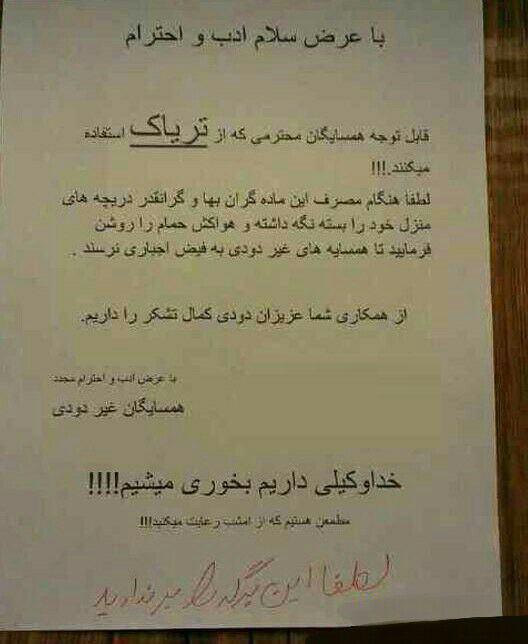 با عرض سلام ادب و احترام
قابل توجه همسایگان محترمی که از تریاک استفاده
میکنند.!!!
لطفا هنگام مصرف این ماده گران بها و گرانقدر دریچه های
منزل خود را بسته نگه داشته و هواکش حمام را روشن
فرمایید تا همسایه های غیر دودی به فیض اجباری نرسند .
از همکاری شما عزیزان دودی کمال تشکر را داریم.
با عرض ادب و احترام مجدد
همسایگان غیر دودی
خداوکیلی داریم بخوری میشیم!!!!
مطمعن هستیم که از امشب رعایت میکنید!!!
لطفا این برگه را بر ندارید